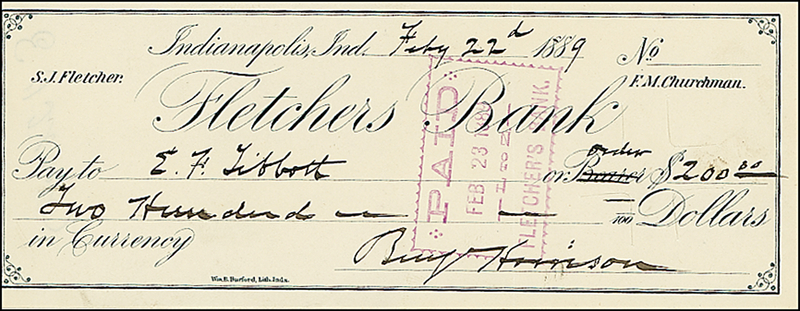 Indianapolis, Ind. Feby 22d 1889 No
S.J. Fletcher. F.M. Churchman.
Fletchers Bank
Pay to E. F. Tibbott or Bearer order $200 00
Two Hundred — — /100 Dollars
in Currency
Benj Harrison
Wm. B. Burford, Lith. Inda.
PAID
FEB 23 1889
FLETCHER'S BANK.